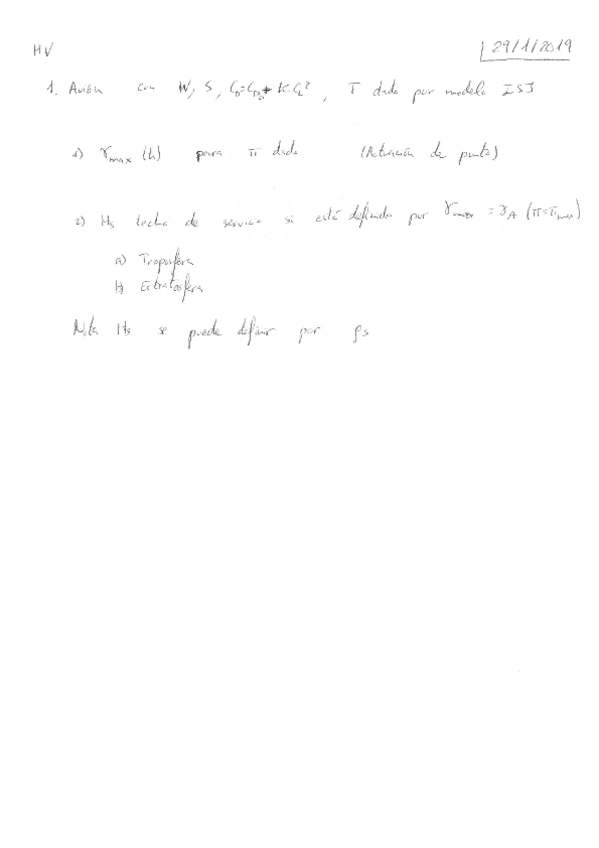 MV
29/1/2019
1. Avión con W, S, C_D=C_D0+K·C_L², T dado por modelo ISJ
1) γmax (h) para π dado (Actuación de punto)
2) Hs techo de servicio si está definido por γmax = γA (π=πmax)
a) Troposfera
b) Estratosfera
Nota Hs se puede definir por ρs